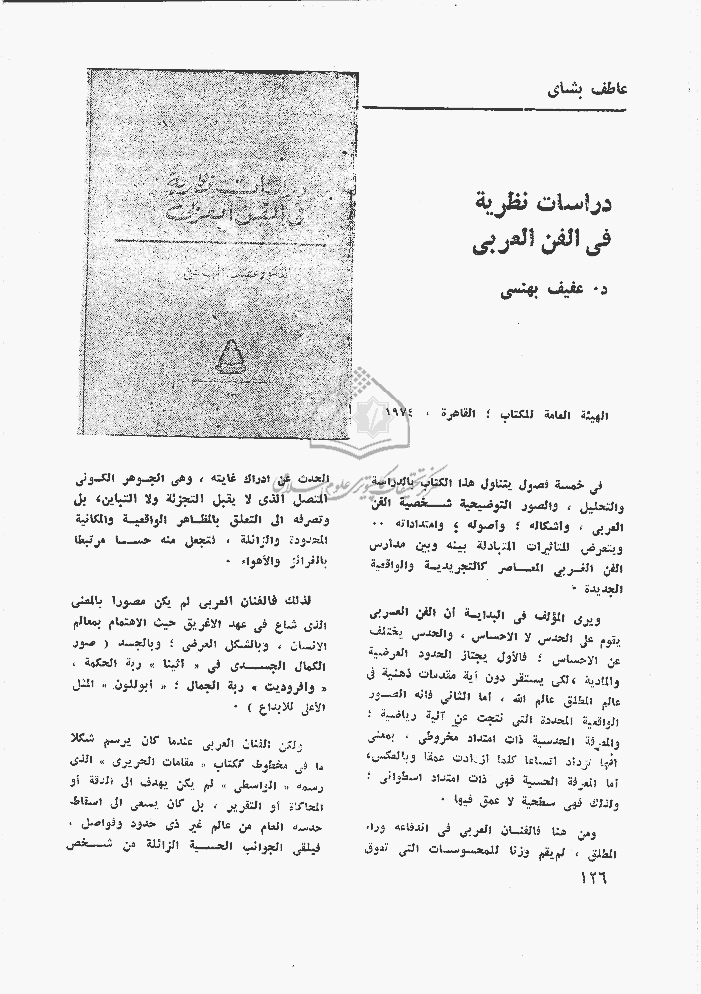 عاطف بشاى
دراسات نظرية
فى الفن العربى
د. عفيف بهنسى
دراسات نظرية
فى الفن العربى
الهيئة العامة للكتاب ؛ القاهرة ، ١٩٧٤
فى خمسة فصول يتناول هذا الكتاب بالدراسة
والتحليل ، والصور التوضيحية شخصية الفن
العربى ، وأشكاله ؛ وأصوله ؛ وامتداداته ٠٠
ويتعرض للتأثيرات المتبادلة بينه وبين مدارس
الفن الغربى المعاصر كالتجريدية والواقعية
الجديدة ٠
ويرى المؤلف فى البداية أن الفن العربى
يقوم على الحدس لا الاحساس ، والحدس يختلف
عن الاحساس ؛ فالأول يجتاز الحدود العرضية
والمادية ، لكى يستقر دون أية مقدمات ذهنية فى
عالم المطلق عالم الله ، أما الثانى فانه الصور
الواقعية المحددة التى نتجت عن آلية رياضية ؛
والمعرفة الحدسية ذات امتداد مخروطى ، بمعنى
أنها تزداد اتساعا كلما ازدادت عمقا وبالعكس ،
أما المعرفة الحسية فهى ذات امتداد اسطوانى ؛
ولذلك فهى سطحية لا عمق فيها ٠
ومن هنا فالفنان العربى فى اندفاعه وراء
المطلق ، لم يقم وزنا للمحسوسات التى تعوق
الحدث عن ادراك غايته ، وهى الجوهر الكونى
المتصل الذى لا يقبل التجزئة ولا التباين ، بل
وتصرفه الى التعلق بالمظاهر الواقعية والمكانية
المحدودة والزائلة ، فتجعل منه حسا مرتبطا
بالغرائز والأهواء ٠
لذلك فالفنان العربى لم يكن مصورا بالمعنى
الذى شاع فى عهد الاغريق حيث الاهتمام بمعالم
الانسان ، وبالشكل العرضى ؛ وبالجسد ( صور
الكمال الجسدى فى « أثينا » ربة الحكمة ،
« وافروديت » ربة الجمال ؛ « أبوللون » المثل
الأعلى للابداع ) ٠
ولكن الفنان العربى عندما كان يرسم شكلا
ما فى مخطوط ككتاب « مقامات الحريرى » الذى
رسمه « الواسطى » لم يكن يهدف الى الدقة أو
المحاكاة أو التقرير ، بل كان يسعى الى اسقاط
حدسه العام من عالم غير ذى حدود وفواصل ،
فيلقى الجوانب الحسية الزائلة من شخص
١٢٦